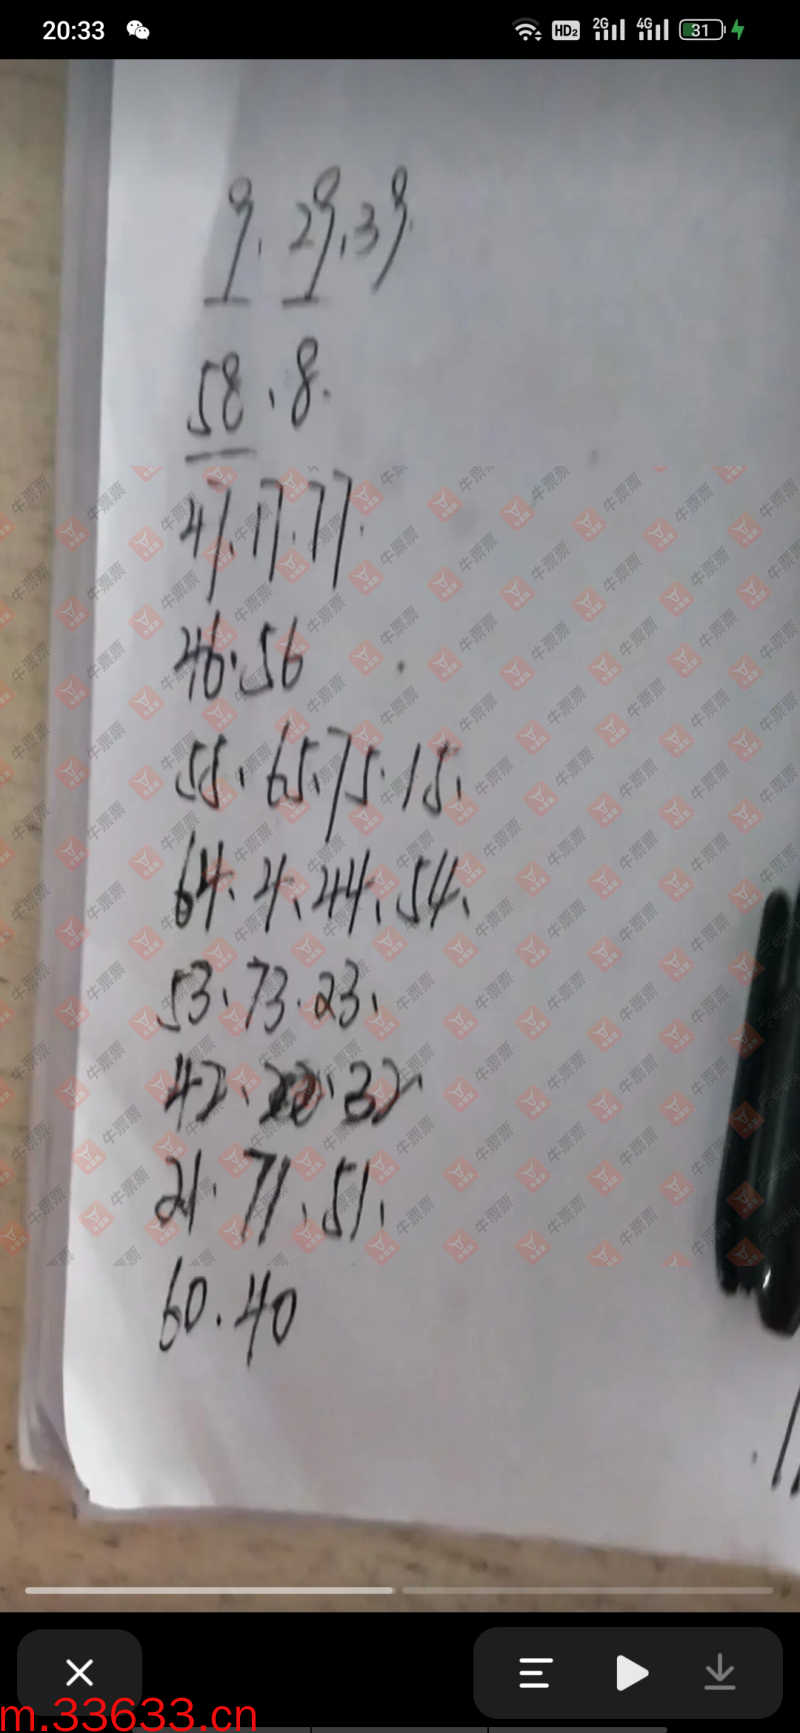 20:33
HD2 2G 4G 31
9、29、39.
58、8.
47、17.77.
46.56
55、65、75.15、
64、4、44、54、
53、73.23、
42、22、32
21.71、51、
60.40
牛票票
m.33633.cn